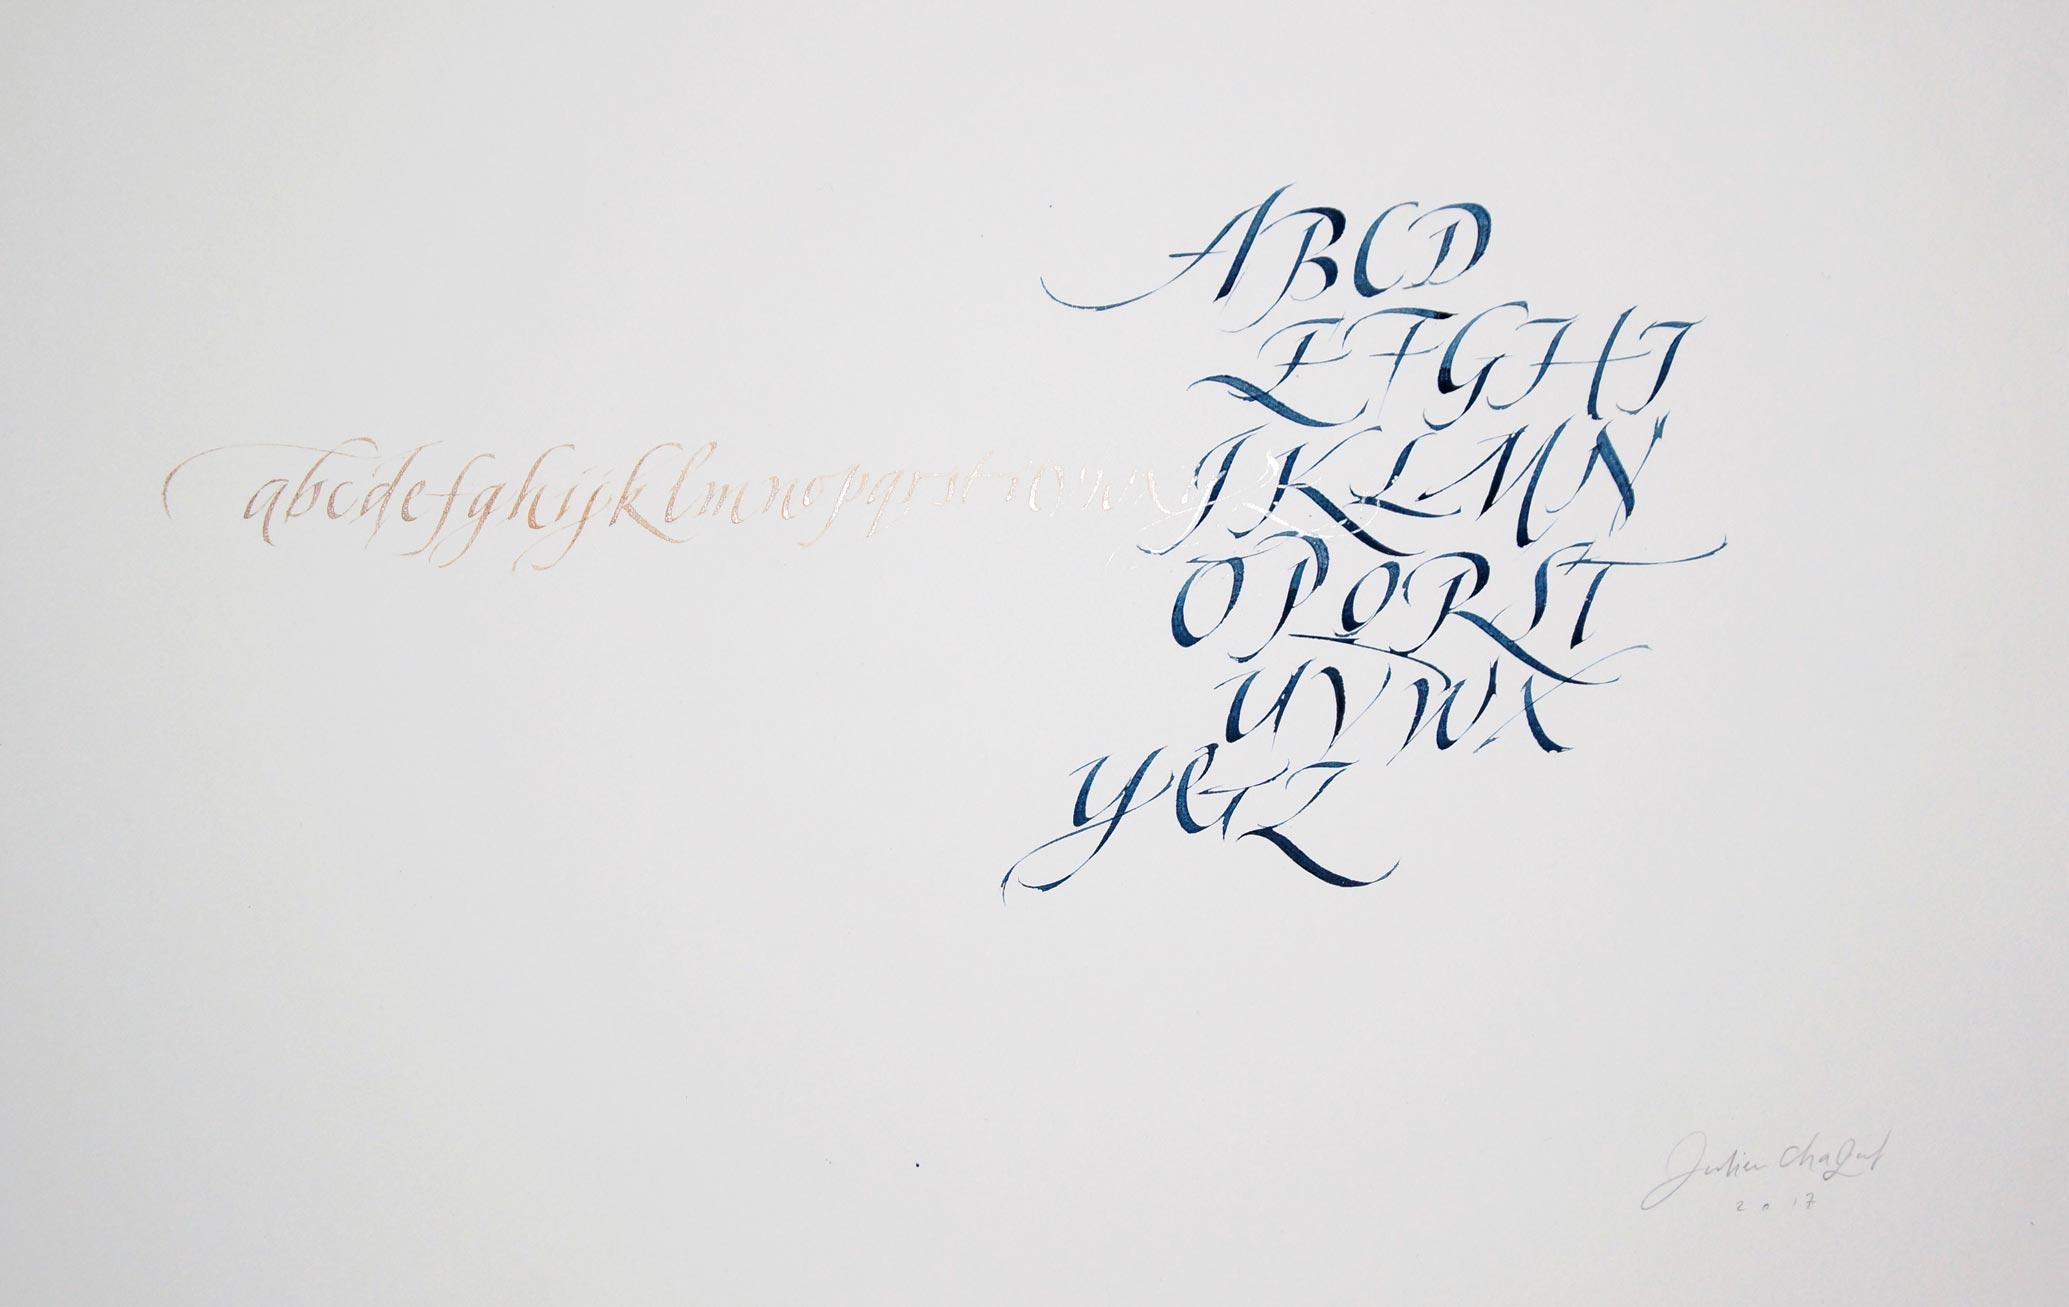 ABCD
EFGHI
abcdefghijklmnopqrstuvwxyz
JKLMN
OPQRST
UVWX
Y&Z
Julien Chazal
2017